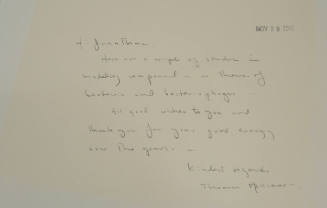 NOV 19
Jonathan
Here are a couple of studies in
modeling compound - on themes of
bacteria and bacteriophages -
All good wishes to you and
thank you for your good energy
over the years -
Kindest regards